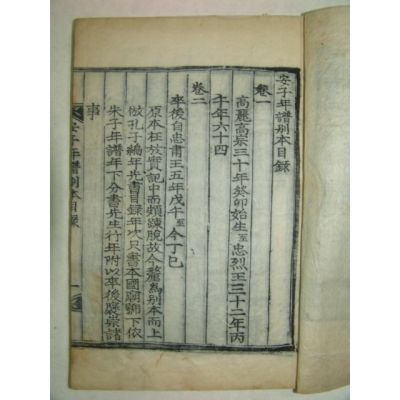 安子年譜別本目錄
卷一
高麗高宗三十年癸卯始生至忠烈王三十二年丙
午年六十四
卷二
卒後自忠肅王五年戊午至今丁巳
原本在放實記中而頗疎脫故今釐為別本而上
倣孔子編年先書目錄年次只書本國廟號下依
朱子年譜年下分書先生行年附以卒後褒崇諸
事
安子年譜別本目錄
一